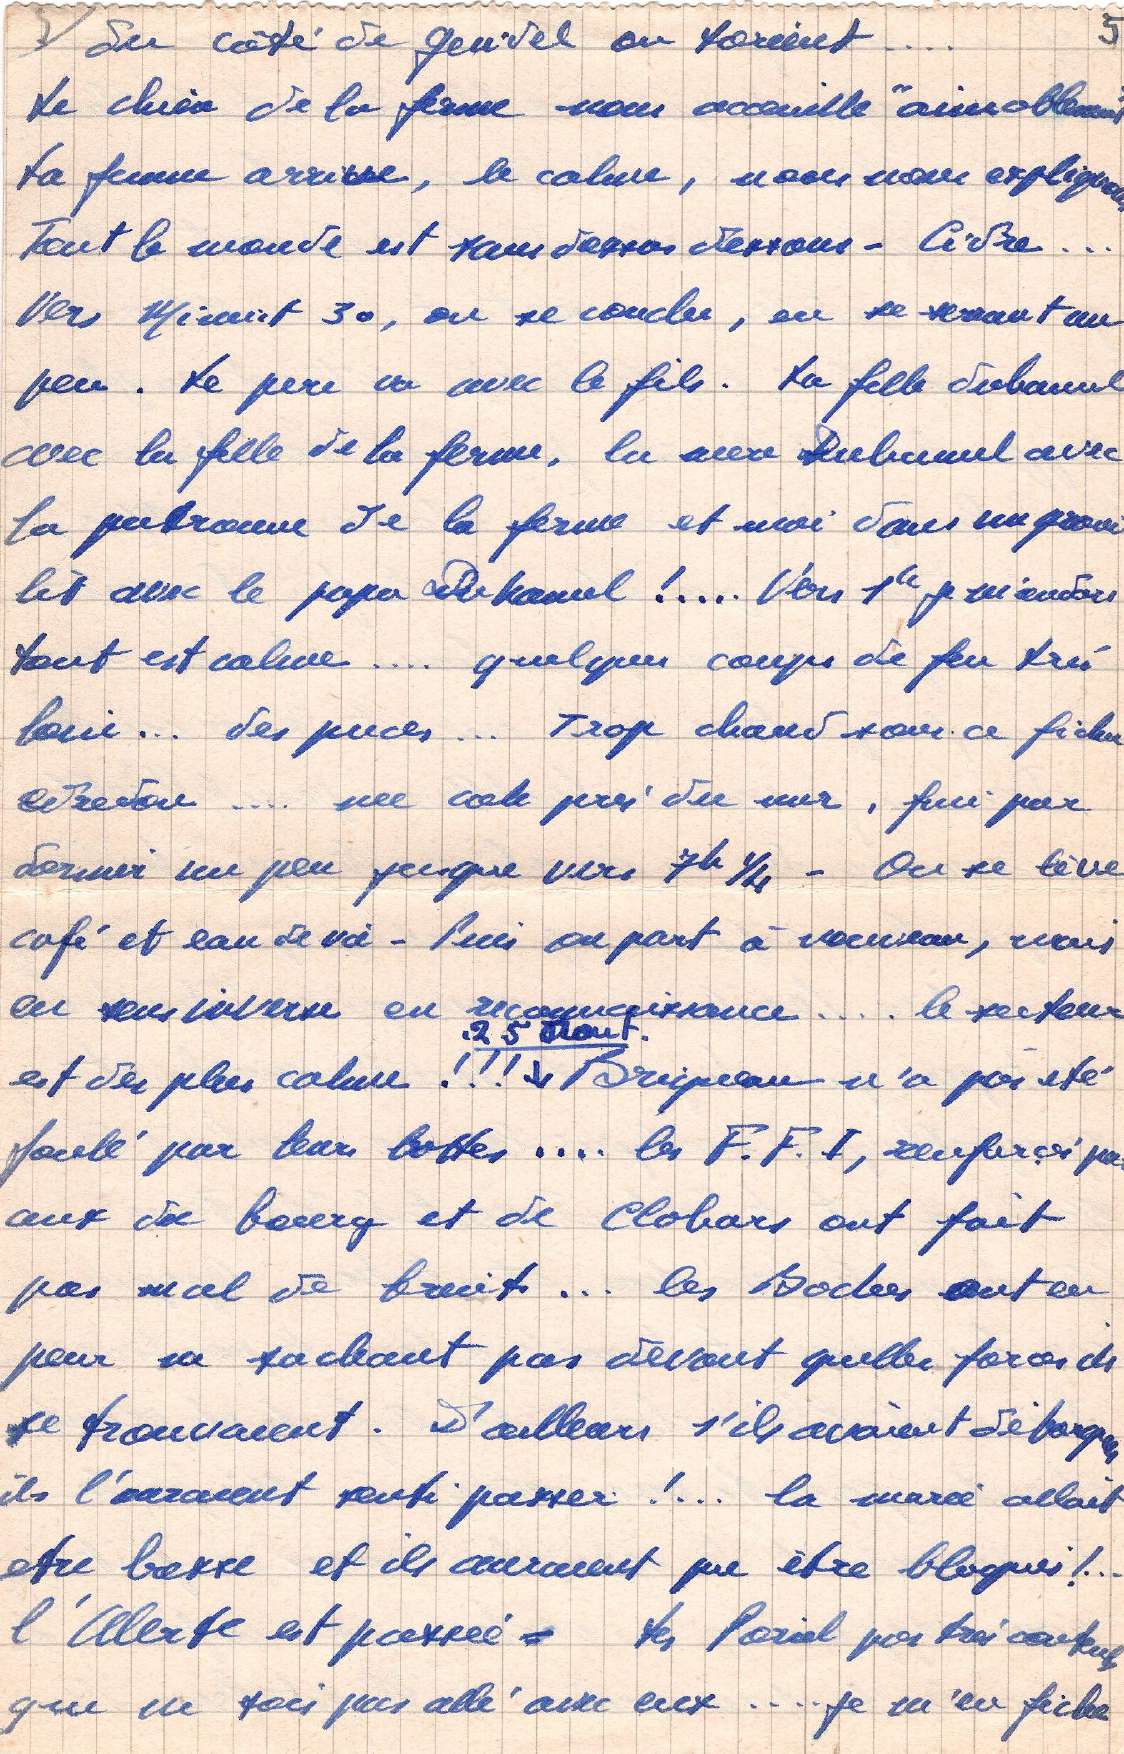 5
du côté de Gendel ou Lorient ....
Le chien de la ferme nous accueille "aimablement"
La femme arrive, le calme, nous nous expliquons
Tout le monde est sans dessus dessous - Cidre ...
Vers Minuit 30, on se couche, en se serrant un
peu. Le pere va avec le fils. La fille Duhamel
avec la fille de la ferme, la mere Duhamel avec
la patronne de la ferme et moi dans un grand
lit avec le papa Duhamel !.... Vers 1h je m'endors
tout est calme .... quelques coups de feu très
loin... des puces ... Trop chaud sous ce fichu
edredon .... me cale près du mur, fini par
dormir un peu jusque vers 7h 1/4 - On se lève
café et eau de vie - Puis on part à nouveau, mais
en sens inverse en reconnaissance .... le secteur
25 Aout.
est des plus calme !!! Brigneau n'a pas été
foulé par leurs bottes .... les F.F.I, renforcés par
ceux du bourg et de Clohars ont fait
pas mal de bruit ... les Boches ont eu
peur ne sachant pas devant quelles forces ils
se trouvaient. D'ailleurs s'ils avaient débarqués
ils l'auraient senti passer !... la marée allait
etre basse et ils auraient pu être bloqués !...
l'Alerte est passée - Les Loriol pas très contents
que ne sois pas allé avec eux .... je m'en fiche